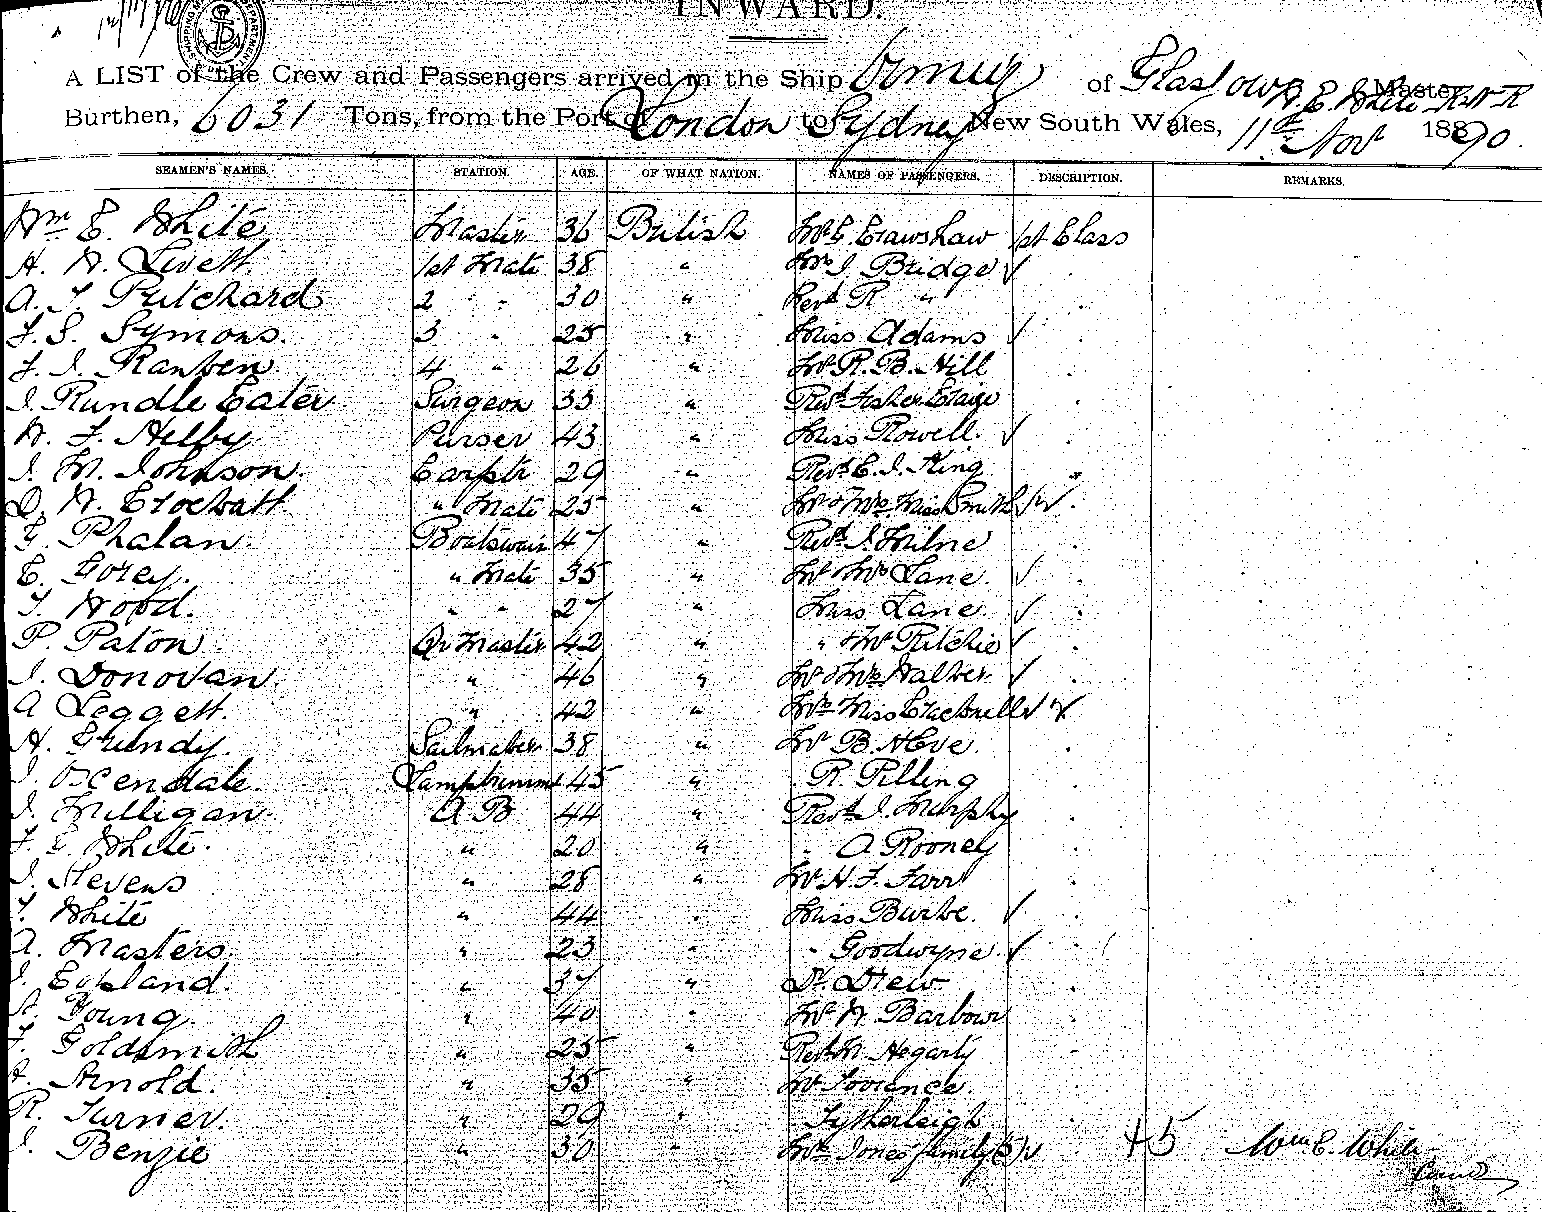 INWARD.
A LIST of the Crew and Passengers arrived in the Ship Ormuz of Glasgow, W. E. White R.N.R Master,
Burthen, 6031 Tons, from the Port of London to Sydney New South Wales, 11th Novr 1890.
SEAMEN'S NAMES. STATION. AGE. OF WHAT NATION. NAMES OF PASSENGERS. DESCRIPTION. REMARKS.
Wm E. White Master 36 British Mr E. Crawshaw 1st Class
H. W. Livett 1st Mate 38 " Mrs J. Bridge ✓ "
A. T. Pritchard 2 " " 30 " Revd R "
F. S. Symons. 3 " 25 " Miss Adams ✓ "
4 " 26 " Mr R. B. Hill "
J. Rundle Cater Surgeon 33 " Revd Fisher Craige "
W. F. Helby Purser 43 " Miss Rowell. ✓ "
J. M. Johnson. Carptr 29 " Revd C. J. King "
" Mate 25 " Mr & Mrs Miss Smith ✓ "
Phalan. Boatswain 47 " Revd J. Milne "
" Mate 35 " Mr & Mrs Lane. ✓ "
T. Wood. " " 27 " Miss Lane ✓ "
P. Paton Qr Master 42 " " & Mr Ritchie ✓ "
J. Donovan. " 46 " Mr & Mrs Walker. ✓ "
A Leggett. " 42 " Mrs Miss Cracknell ✓ ✓
H. Grundy. Sailmaker 38 " Mr B. "
Lamptrimmer 45 " R. Pilling "
J. Milligan. A.B 44 " Revd J. Murphy "
White. " 20 " " A. Rooney "
J. Stevens " 28 " Mr H. F. Farr "
T. White " 44 " Miss Burke. ✓ "
A. Masters. " 23 " " Goodwyne. ✓ "
J. Copland. " 37 " Dr. Drew "
Young. " 40 " Mr W. Barbour "
F. Goldsmith " 25 " Revd M. Hegarty "
Arnold. " 35 " Mr Torrence. "
R. Turner. " 29 " Tytherleigh "
J. Benzie " 30 " Mrs Jones family (5) ✓ " +5 Wm E. White